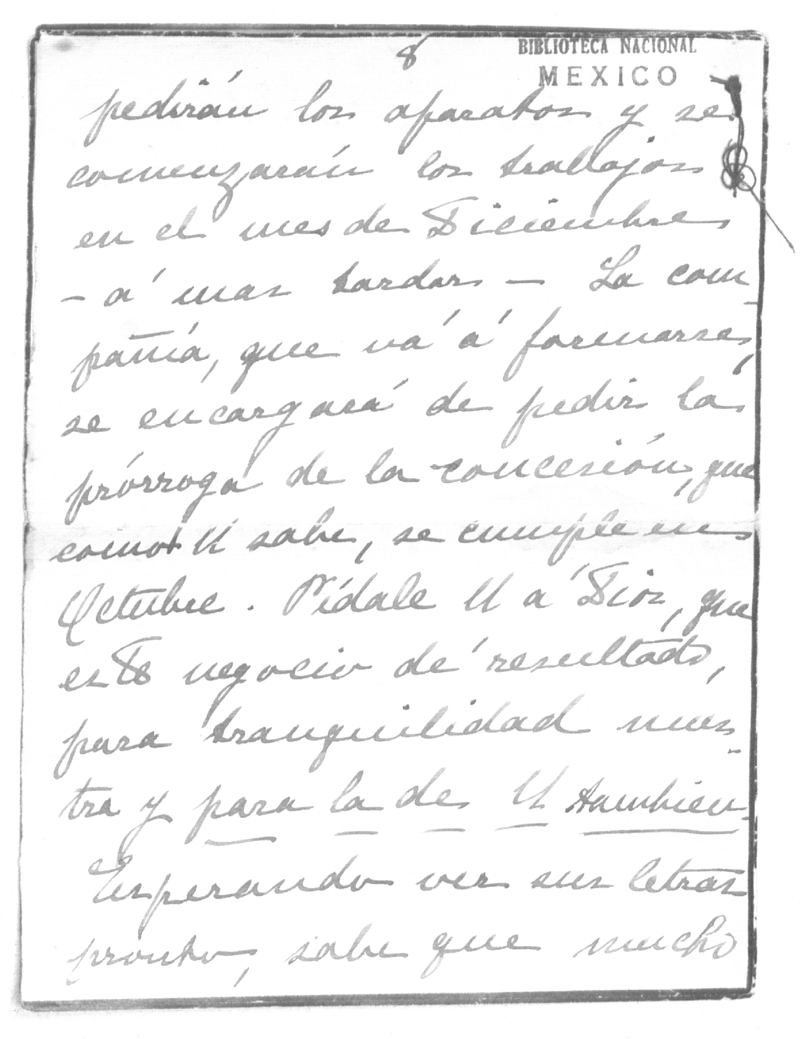 8
BIBLIOTECA NACIONAL
MEXICO
pedirán los aparatos y se
comenzarán los trabajos
en el mes de Diciembre
- á mas tardar - La com-
pañía, que vá á formarse,
se encargará de pedir la
prórroga de la concesión, que
como U sabe, se cumple en
Octubre. Pídale U a Dios, que
este negocio dé resultado,
para tranquilidad nues-
tra y para la de U tambien.
Esperando ver sus letras
pronto, sabe que mucho